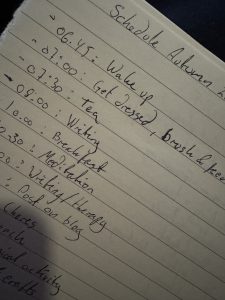 Schedule Autumn
- 06:45 : Wake up
- 07:00 : Get dressed, brush &
- 07:30 : Tea
- 08:00 : Writing
10.00 : Breakfast
2.30 : Meditation
: Writing / therapy
: Post on blog
Chess